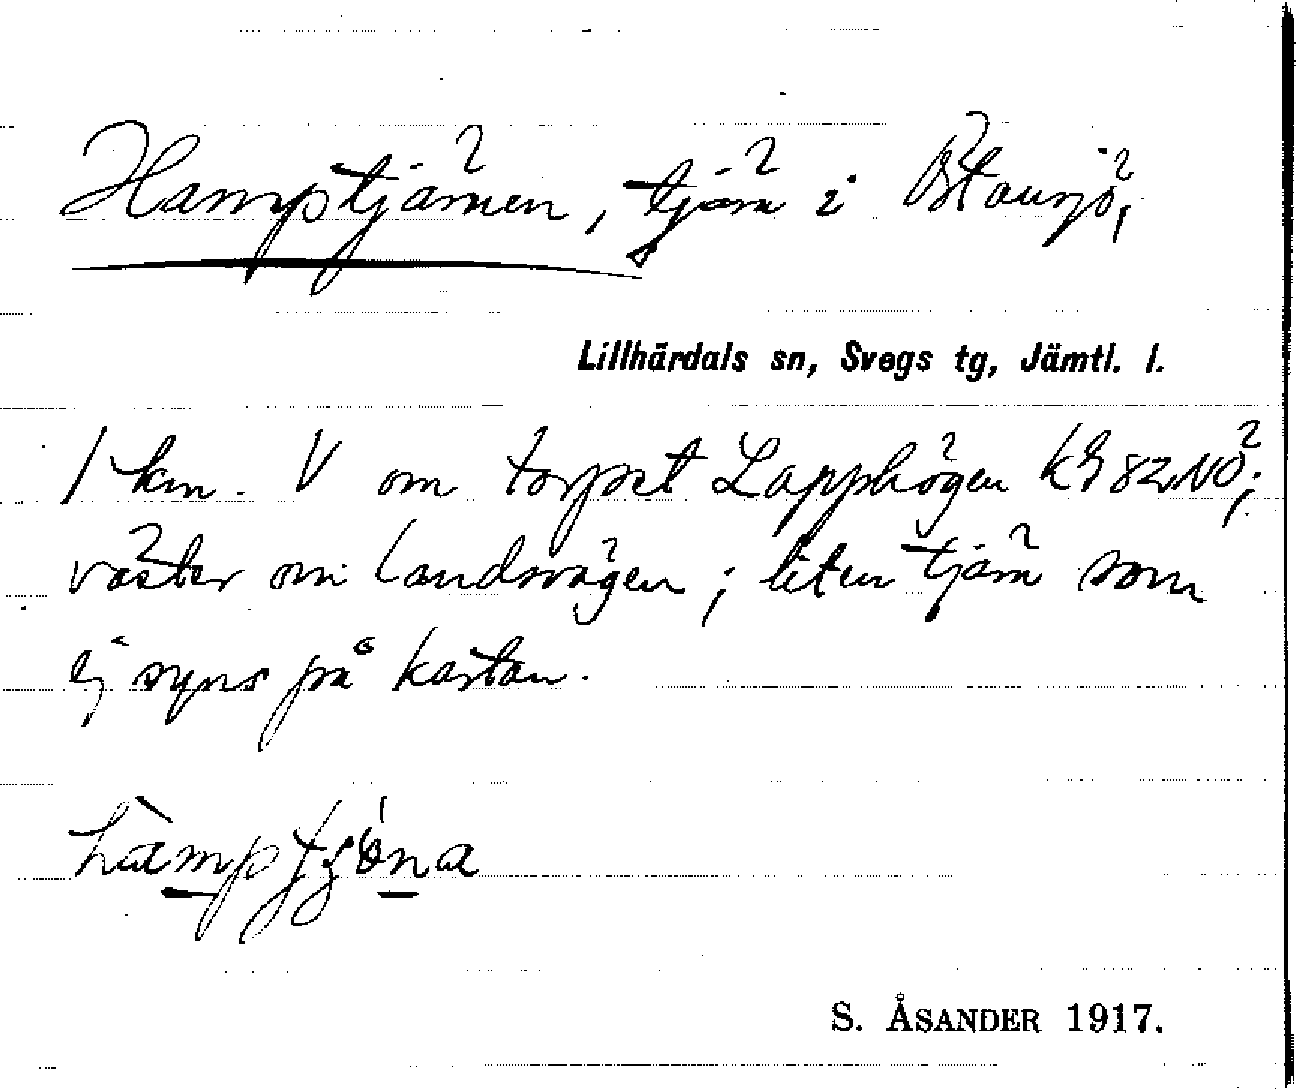 Hamptjärnen, tjärn i Blansjö,
Lillhärdals sn, Svegs tg, Jämtl. l.
1 km. V om torpet Lapphögen 82 NÖ;
väster om landsvägen; liten tjärn som
ej syns på kartan.
S. ÅSANDER 1917.